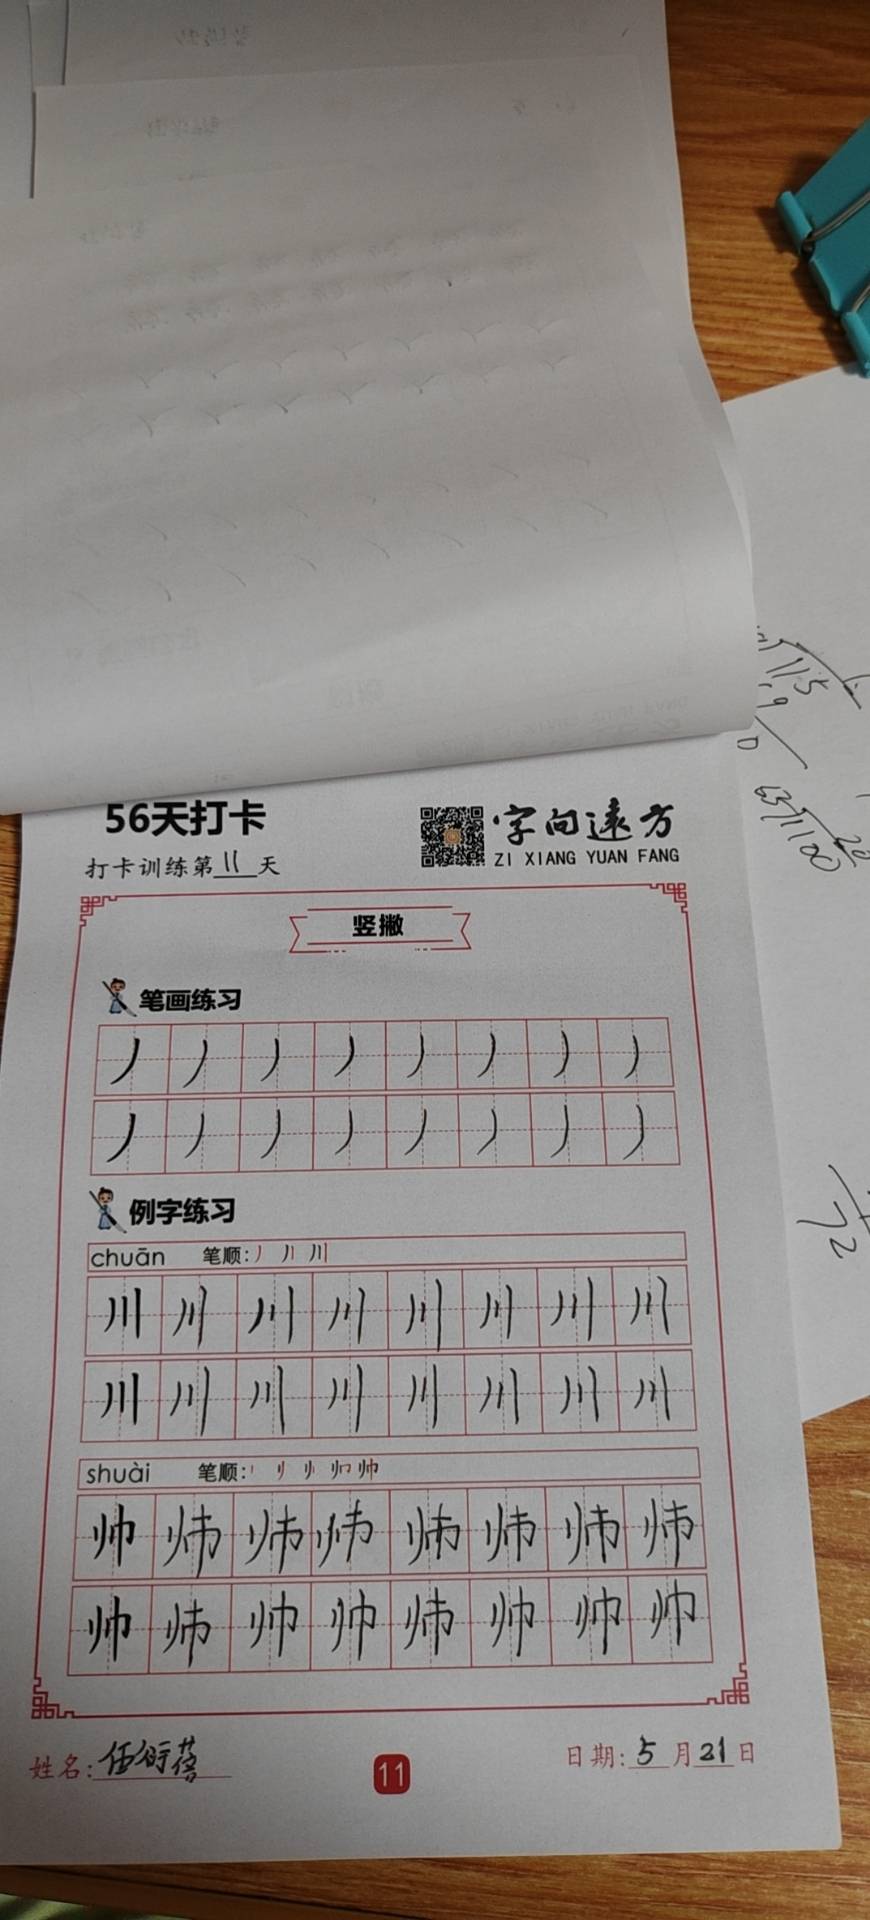 56天打卡
字向远方
ZI XIANG YUAN FANG
打卡训练第11天
竖撇
笔画练习
丿丿丿丿丿丿丿丿
丿丿丿丿丿丿丿丿
例字练习
chuān 笔顺: 丿 丿丨 川
川川川川川川川川
川川川川川川川川
shuài 笔顺: 帅
帅师师师师师师师
帅师帅帅师帅帅帅
姓名: 伍衍蓓
11
日期: 5月21日
115
1100
72